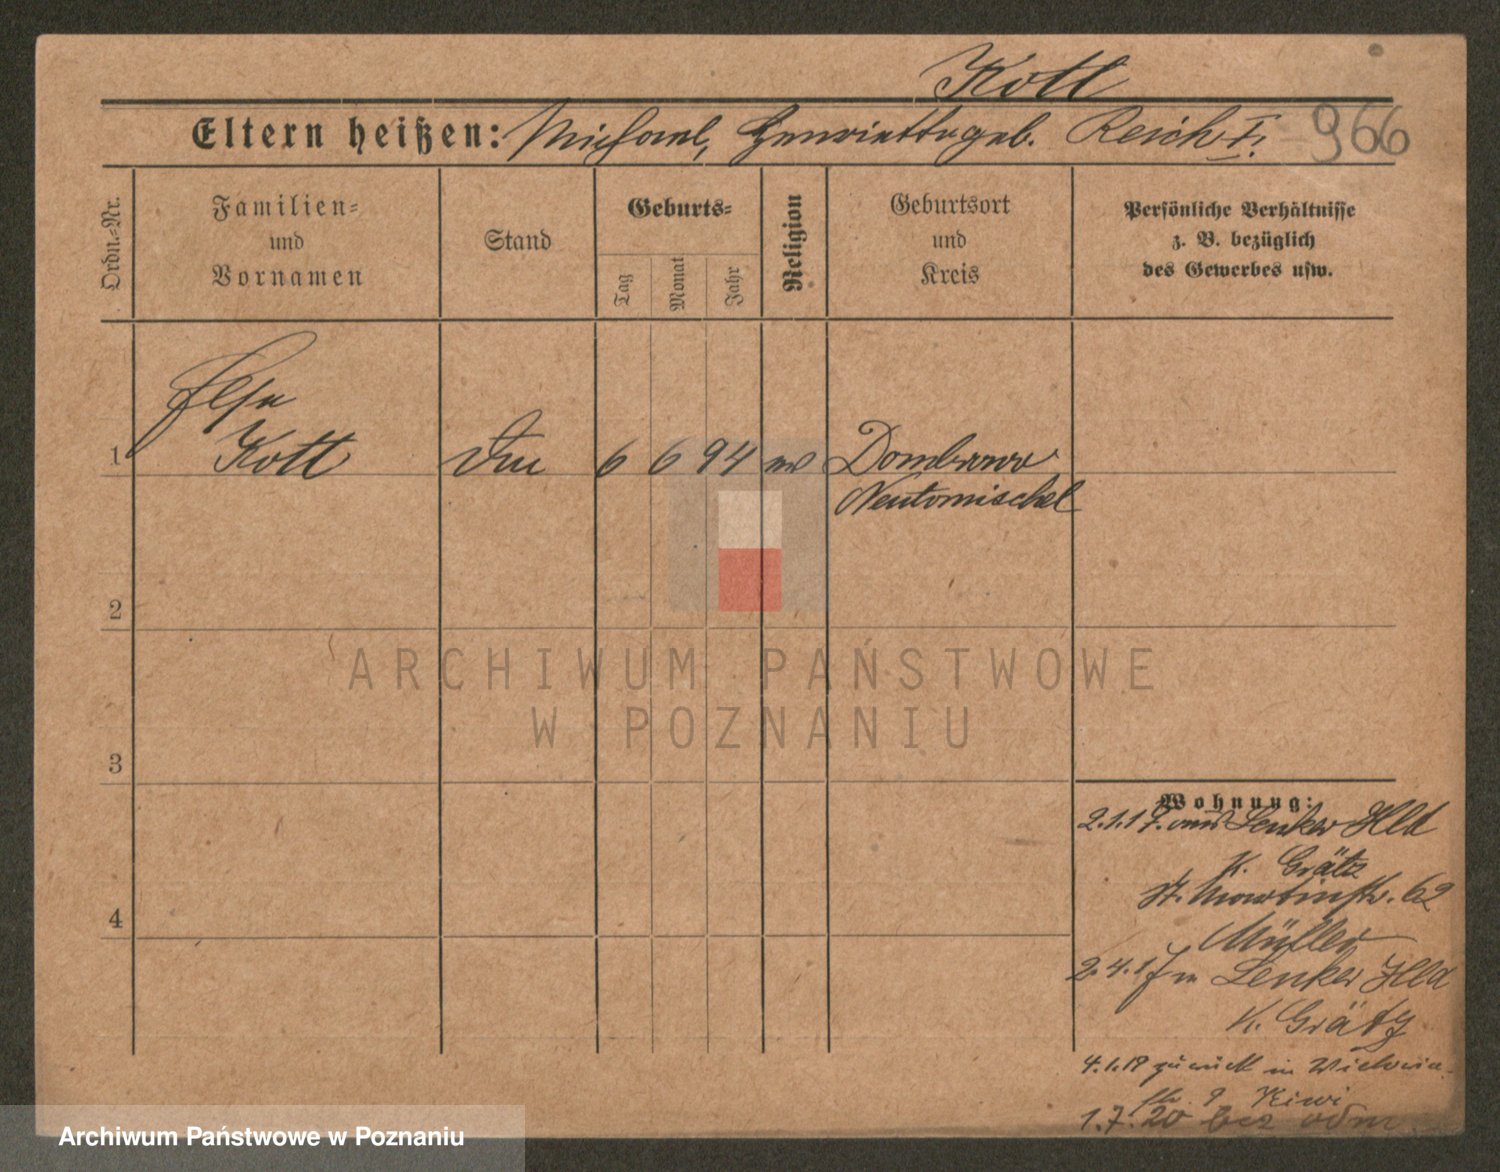 Kott
Eltern heißen: Michael, Henriette geb. Reich I. 966
Ordn.-Nr.
Familien-
und
Vornamen
Stand
Geburts-
Tag
Monat
Jahr
Religion
Geburtsort
und
Kreis
Persönliche Verhältnisse
z. B. bezüglich
des Gewerbes usw.
Else
1 Kott 6 6 94 Dombrowo
Neutomischel
2
ARCHIWUM PAŃSTWOWE
W POZNANIU
3
Wohnung:
2.1.17. aus Lenker Hld
K. Grätz
St. Martinstr. 62
Müller
2.4.17 n Lenker Hld
K. Grätz
4
4.1.19 zurück in Victoria-
str. 9 Kiwi
1.7.20 bez odm
Archiwum Państwowe w Poznaniu